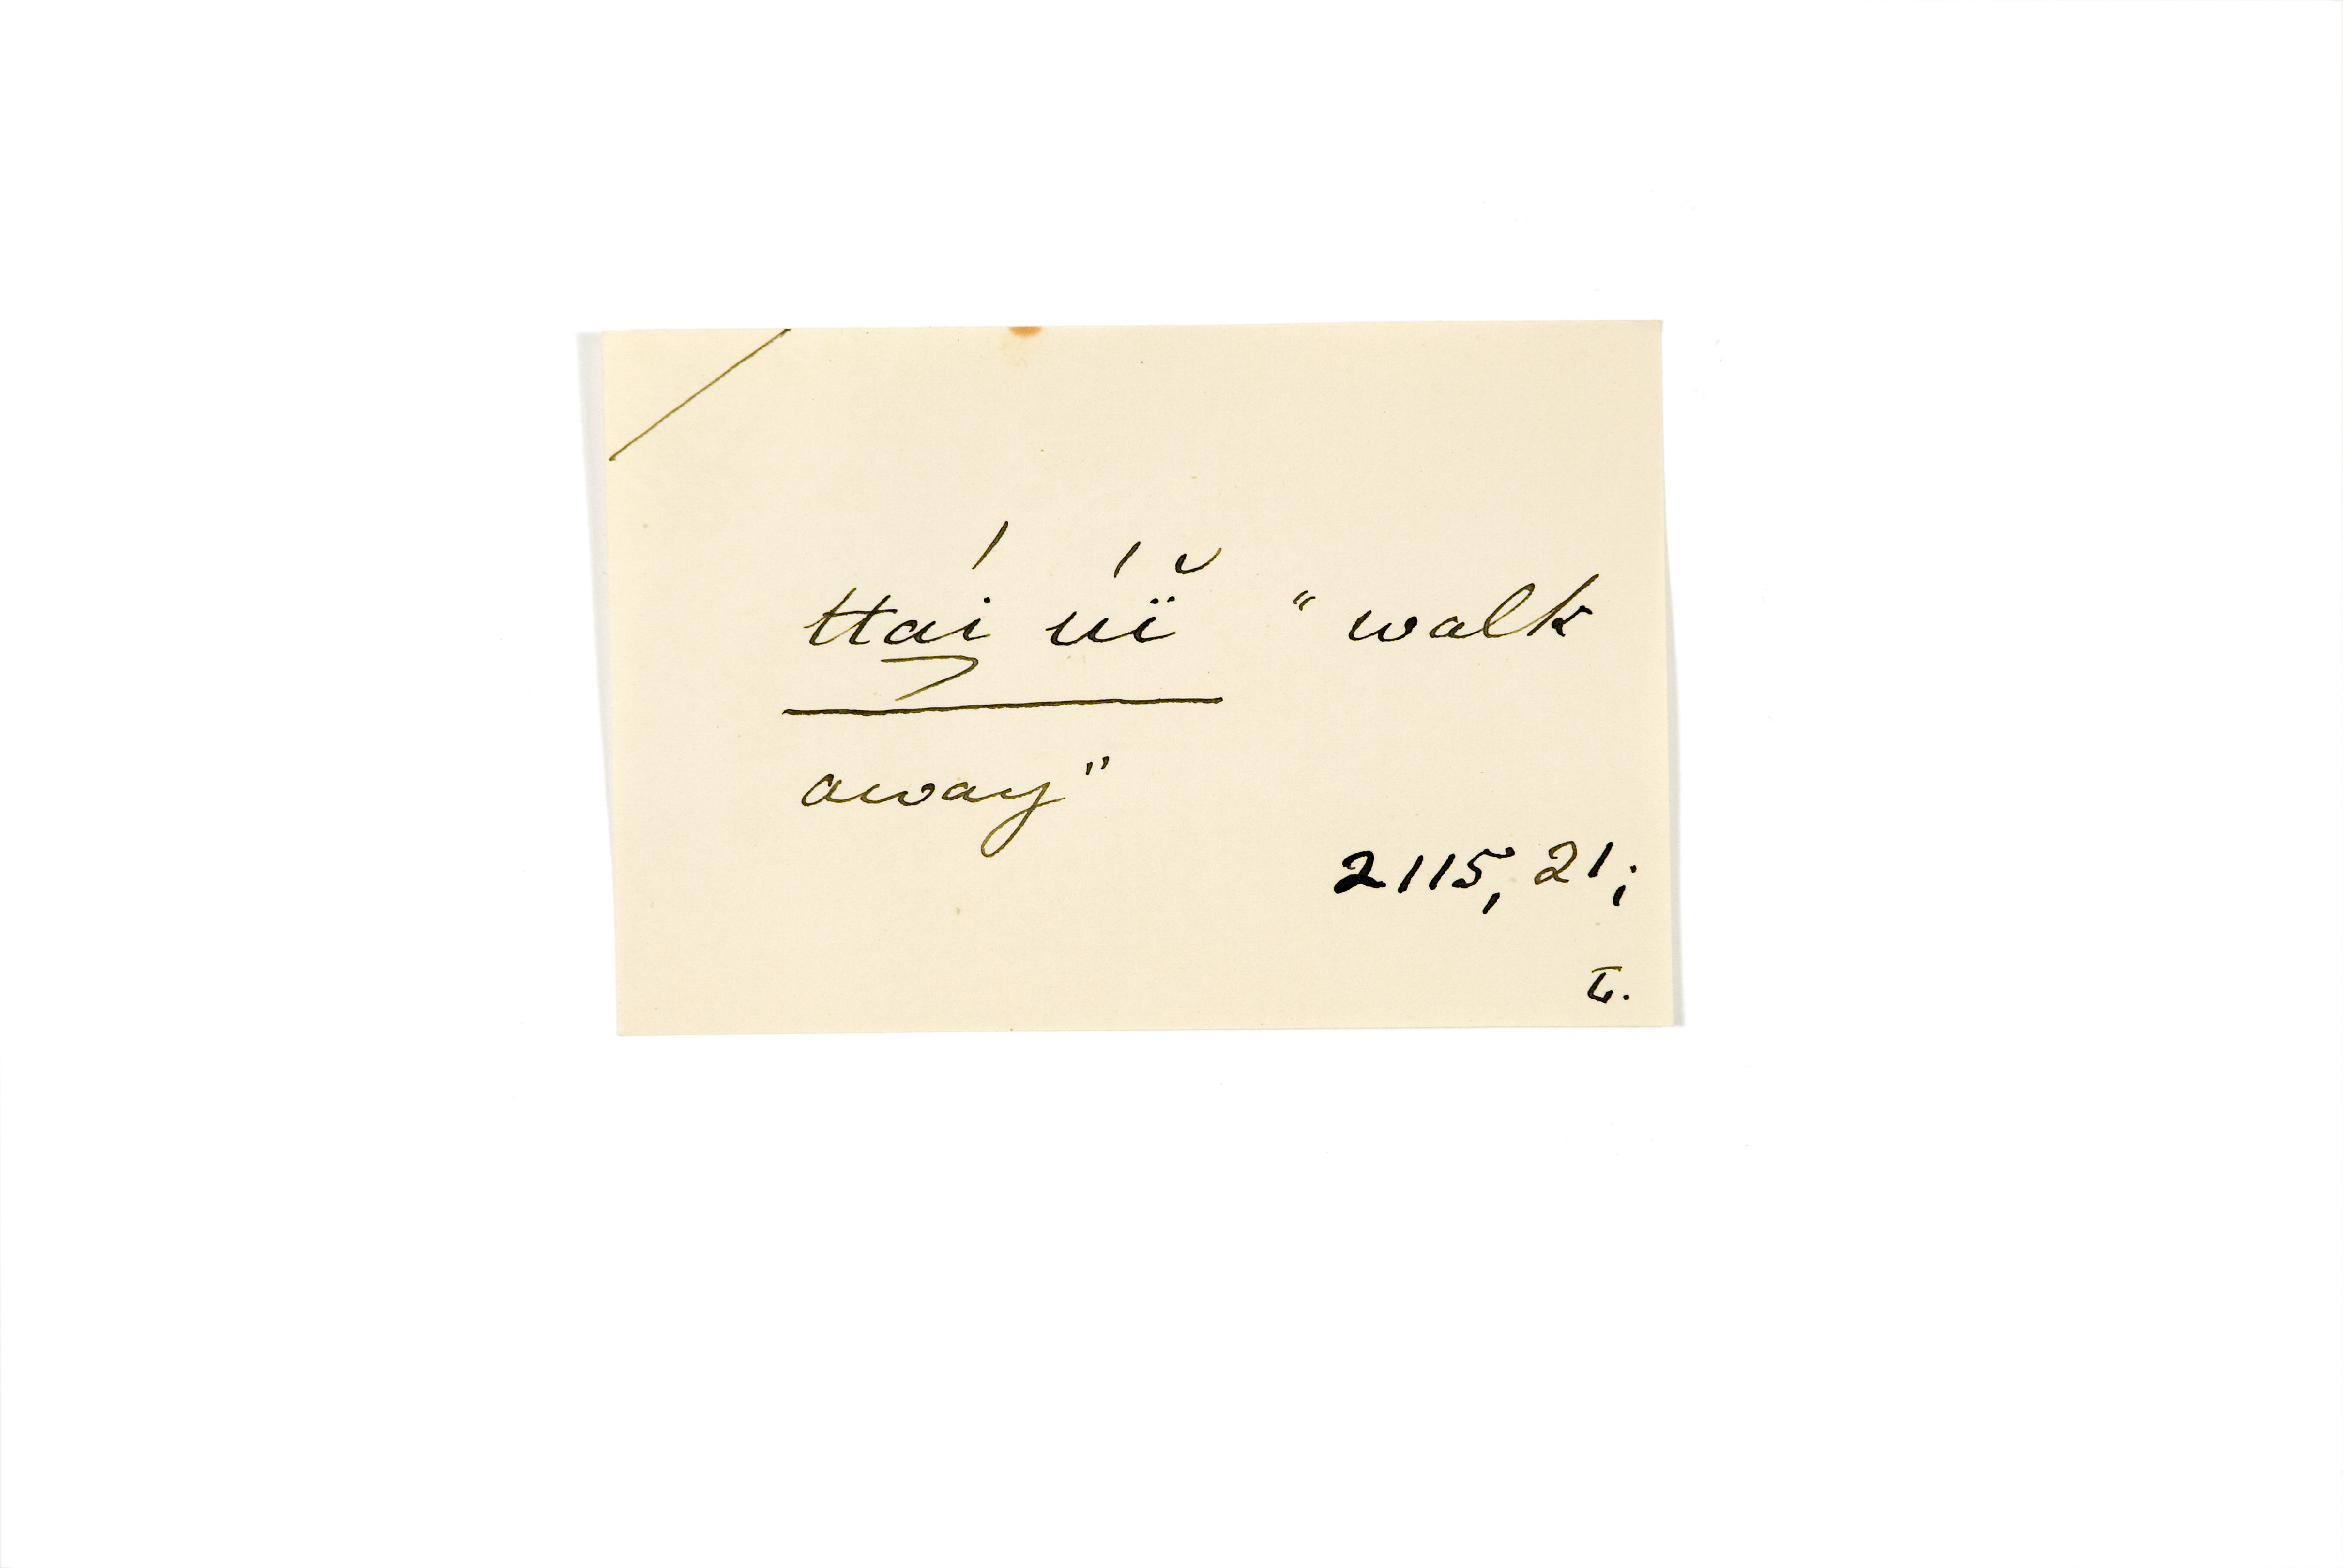 ttaí úï̆ "walk
away"
2115, 21;
L.